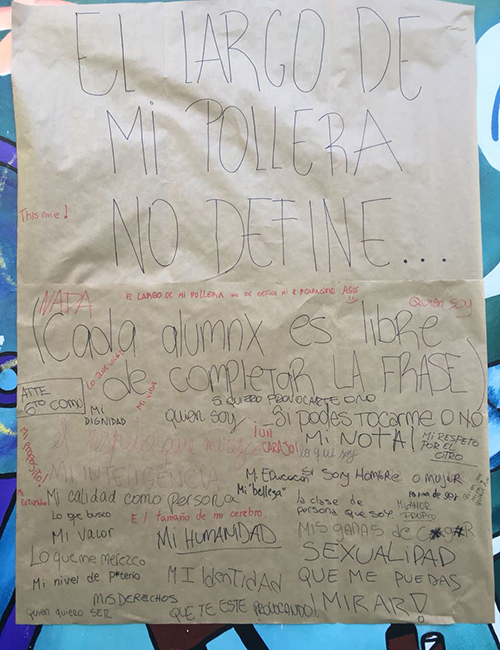 EL LARGO DE
MI POLLERA
NO DEFINE...
This me!
NADA
EL LARGO DE MI POLLERA NO DE DEFINE MI
QUIEN SOY
(Cada alumnx es libre
de completar LA FRASE)
Lo que
MI VIDA
ATTE
6to como
SI QUIERO PROVOCARTE O NO
Mi
DIGNIDAD
quien soy
SI PODES TOCARME O NO
El respeto que merezco
¡UN
CARAJO!
MI NOTA!
MI RESPETO
POR EL
OTRO
MI PROPÓSITO!
lo que soy
MI INTELIGENCIA
Mi Educación
Si Soy Hombre o mujer
Mi calidad como persona
Mi "belleza"
la clase de
persona que soy
forma de ser
MI AMOR
PROPIO
Lo que busco
El tamaño de mi cerebro
Mi Valor
Mi HUMANIDAD
MIS GANAS DE C*g*R
SEXUALIDAD
Lo que me merezco
Mi nivel de p*terio
MI IdentidAd
QUE ME PUEDAS
¡MIRAR!
MIS DERECHOS
quien quiero SER
QUE TE ESTE PROVOCANDO!